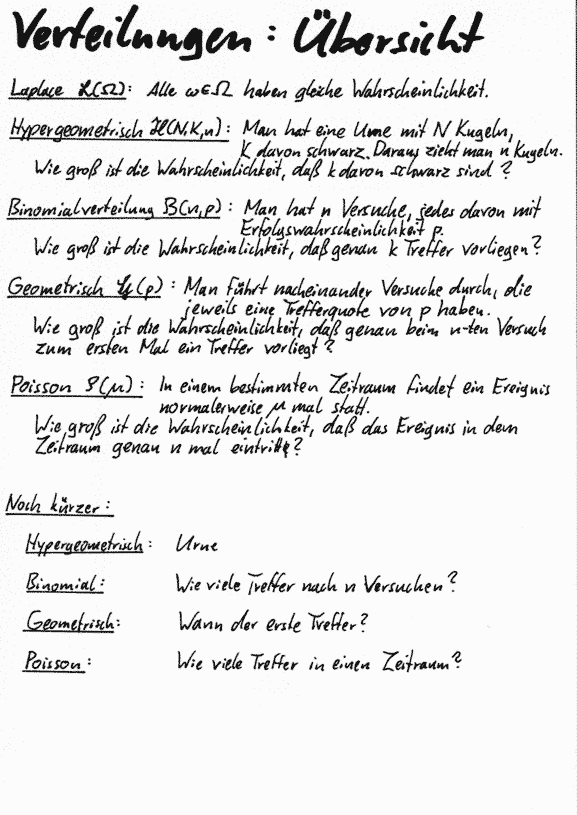 Verteilungen: Übersicht
Laplace L(Ω): Alle ω∈Ω haben gleiche Wahrscheinlichkeit.
Hypergeometrisch H(N,K,n): Man hat eine Urne mit N Kugeln,
K davon schwarz. Daraus zieht man n Kugeln.
Wie groß ist die Wahrscheinlichkeit, daß k davon schwarz sind?
Binomialverteilung B(n,p): Man hat n Versuche, jedes davon mit
Erfolgswahrscheinlichkeit p.
Wie groß ist die Wahrscheinlichkeit, daß genau k Treffer vorliegen?
Geometrisch G(p): Man führt nacheinander Versuche durch, die
jeweils eine Trefferquote von p haben.
Wie groß ist die Wahrscheinlichkeit, daß genau beim n-ten Versuch
zum ersten Mal ein Treffer vorliegt?
Poisson P(μ): In einem bestimmten Zeitraum findet ein Ereignis
normalerweise μ mal statt.
Wie groß ist die Wahrscheinlichkeit, daß das Ereignis in dem
Zeitraum genau n mal eintritt?
Noch kürzer:
Hypergeometrisch: Urne
Binomial: Wie viele Treffer nach n Versuchen?
Geometrisch: Wann der erste Treffer?
Poisson: Wie viele Treffer in einen Zeitraum?